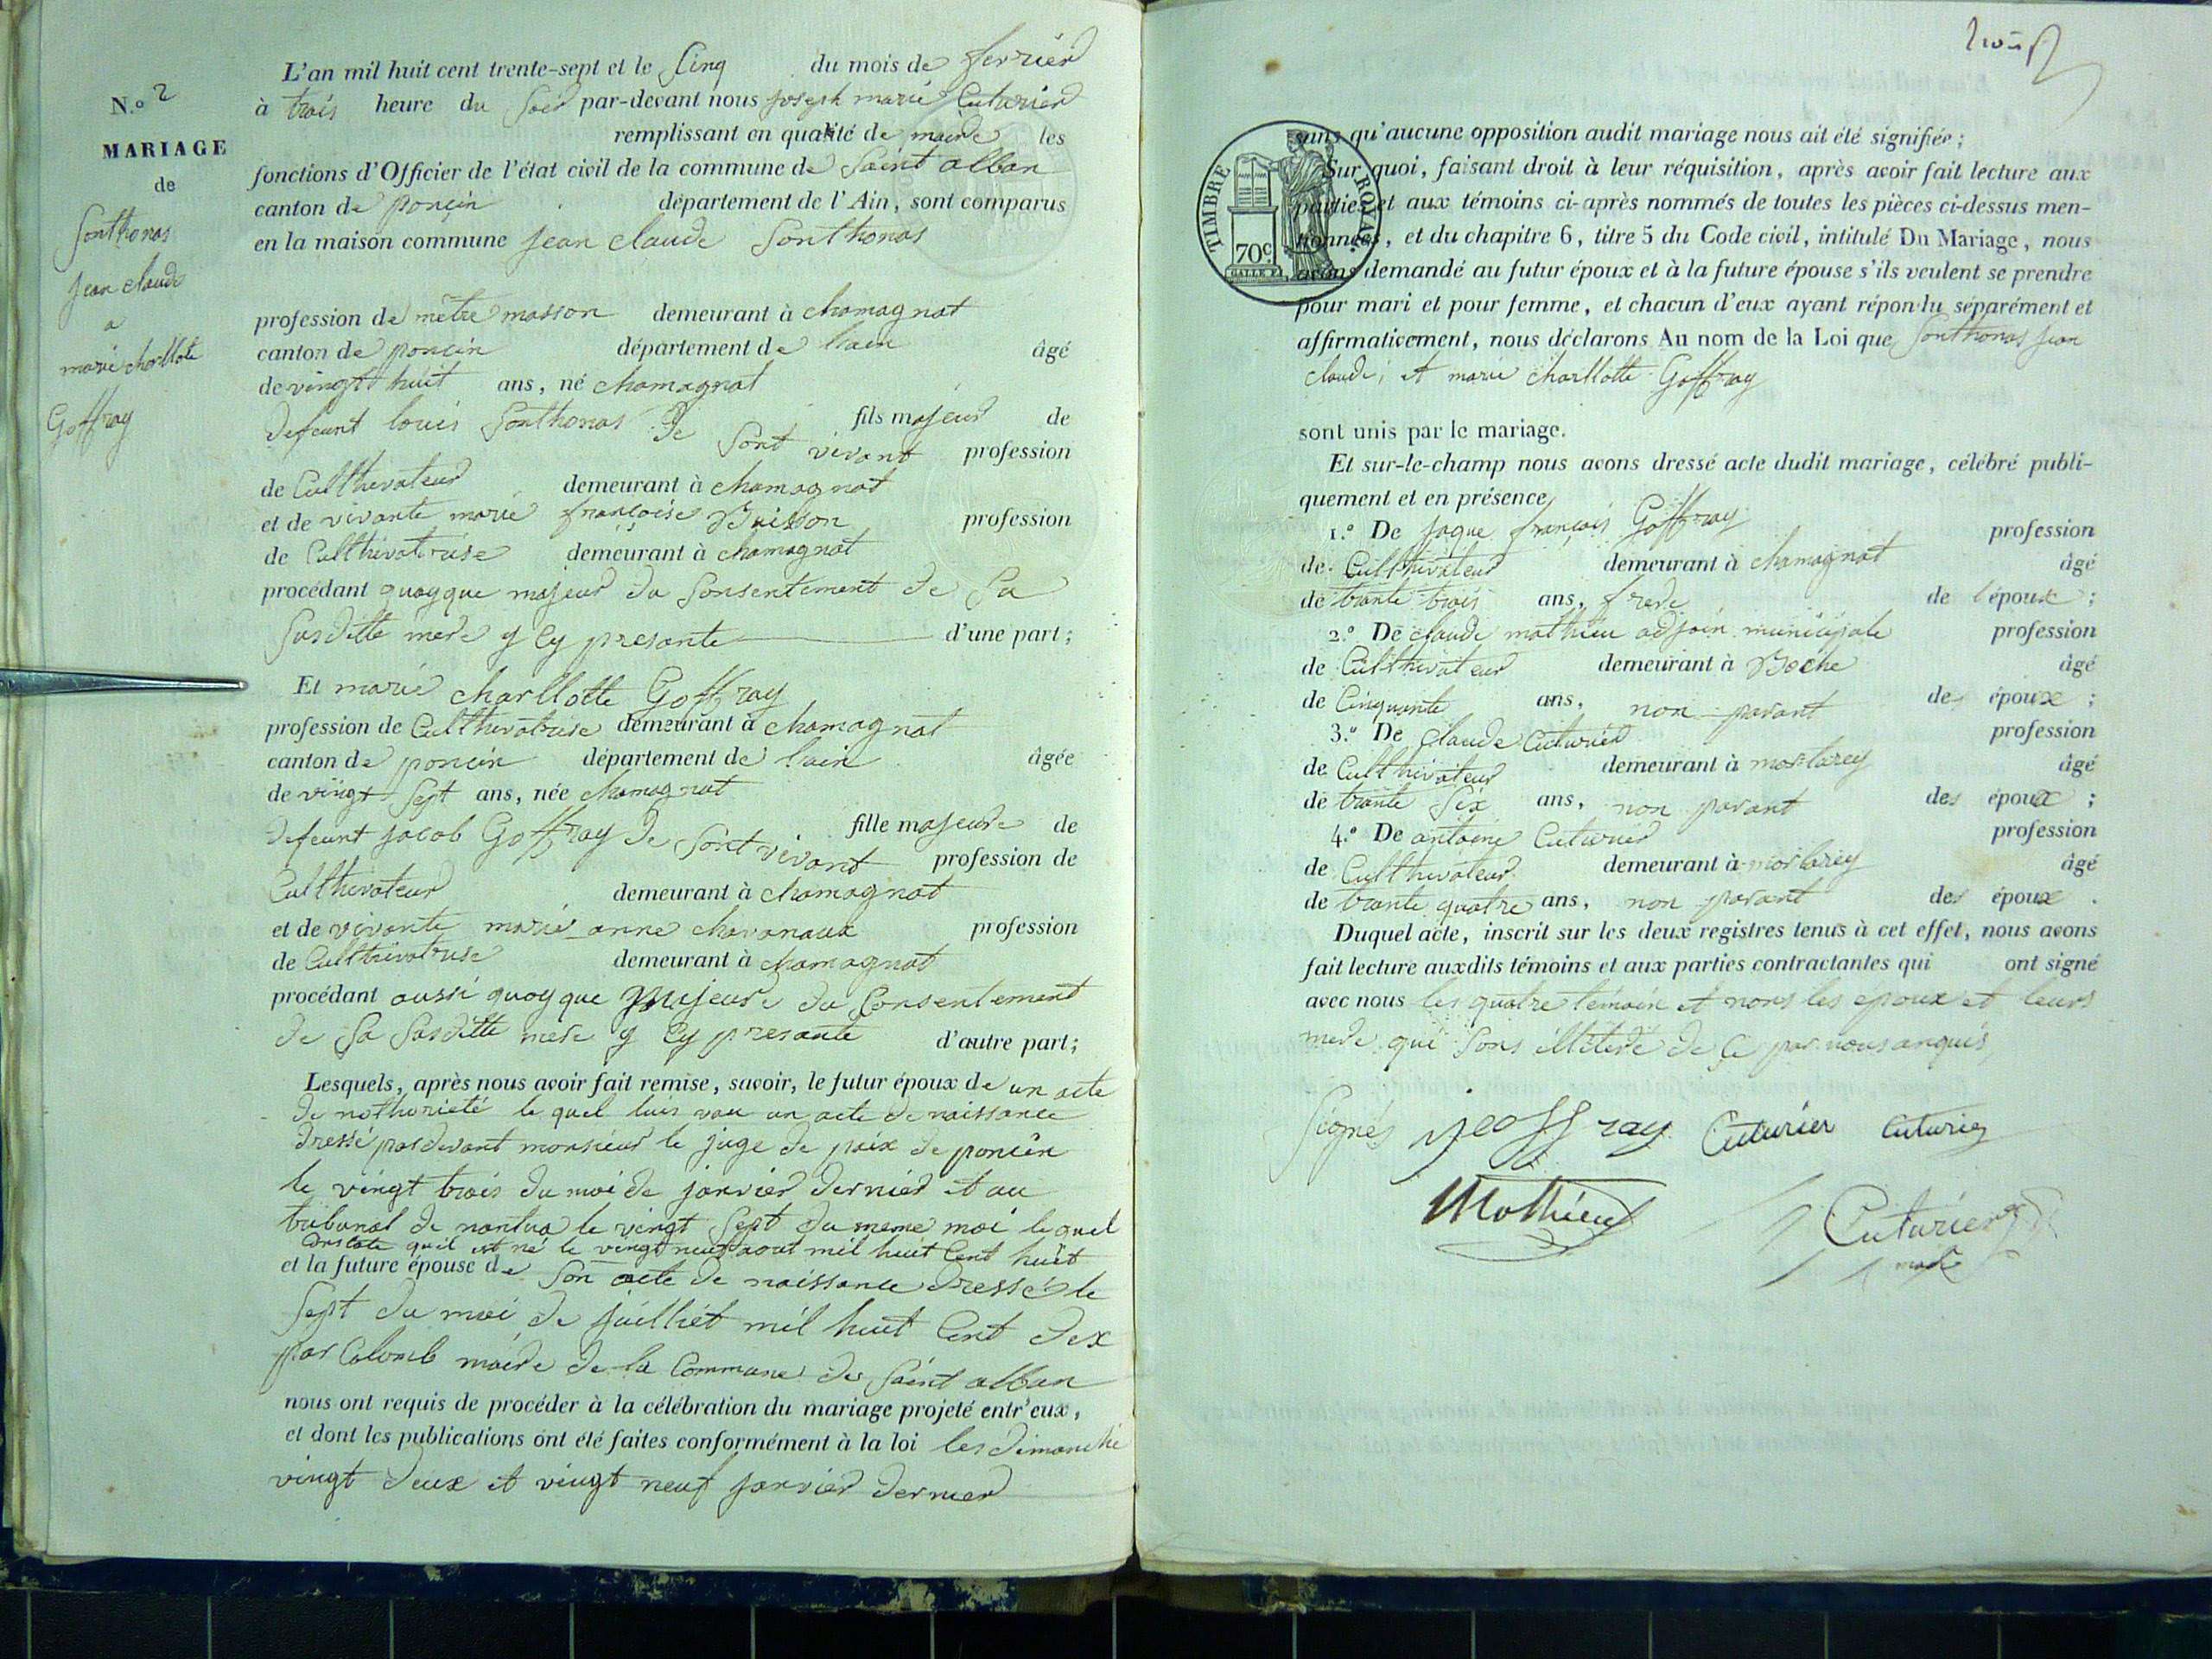 N.o 2
MARIAGE
de
Sonthonas
jean claude
a
marie charllote
Goffray
L'an mil huit cent trente-sept et le Sinq du mois de fevrier
à trois heure du Soir par-devant nous joseph marie Cuturier
remplissant en qualité de maire les
fonctions d'Officier de l'état civil de la commune de Saint alban
canton de poncin département de l'Ain, sont comparus
en la maison commune jean claude Sonthonas
profession de mêtre masson demeurant à chamagnat
canton de poncin département de lain âgé
de vingt huit ans, né chamagnat
defeunt louis Sonthonas de Sont vivant fils majeur de
profession
de Cullthivateur demeurant à chamagnat
et de vivante marie françoise Buisson profession
de Cullthivatrise demeurant à chamagnat
procédant quoyque majeur du Consentement de Sa
Susditte mere y Cy presante d'une part;
Et marie charllotte Goffray
profession de Cullthivatrise demeurant à chamagnat
canton de poncin département de lain âgée
de vingt Sept ans, née chamagnat
defeunt jacob Goffray de Sont vivant fille majeure de
profession de
Cullthivateur demeurant à chamagnat
et de vivante marie anne chavanaux profession
de Cullthivatrise demeurant à chamagnat
procédant aussi quoyque majeure du Consentement
de Sa Susditte mere y Cy presante d'autre part;
Lesquels, après nous avoir fait remise, savoir, le futur époux de un acte
de nothorieté le quel luis vau un acte de naissance
dressé pardevant monsieur le juge de paix de poncin
le vingt trois du moi de janvier dernier et au
tribunal de nantua le vingt Sept du meme moi le quel
Constate quil est né le vingt neuf aout mil huit Cent huit
et la future épouse de Son acte de naissance dressé le
Sept du moi de juilliet mil huit Cent dix
par Colomb maire de la Commune de Saint alban
nous ont requis de procéder à la célébration du mariage projeté entr'eux,
et dont les publications ont été faites conformément à la loi les dimanche
vingt deux et vingt neuf janvier dernier
TIMBRE ROYAL
70c.
sans qu'aucune opposition audit mariage nous ait été signifiée;
Sur quoi, faisant droit à leur réquisition, après avoir fait lecture aux
parties et aux témoins ci-après nommés de toutes les pièces ci-dessus men-
tionnées, et du chapitre 6, titre 5 du Code civil, intitulé Du Mariage, nous
avons demandé au futur époux et à la future épouse s'ils veulent se prendre
pour mari et pour femme, et chacun d'eux ayant répondu séparément et
affirmativement, nous déclarons Au nom de la Loi que Sonthonas jean
claude, et marie charllotte Goffray
sont unis par le mariage.
Et sur-le-champ nous avons dressé acte dudit mariage, célébré publi-
quement et en présence
1.o De jaque françois Goffray profession
de Cullthivateur demeurant à chamagnat âgé
de trante trois ans, frere de lépouse;
2.o De claude mathieu adjoin municipale profession
de Cullthivateur demeurant à Boche âgé
de Cinquante ans, non parant des époux;
3.o De claude Cuturier profession
de Cullthivateur demeurant à mortarey âgé
de trante Six ans, non parant des époux;
4.o De antoine Cuturier profession
de Cullthivateur demeurant à mortarey âgé
de trante quatre ans, non parant des époux.
Duquel acte, inscrit sur les deux registres tenus à cet effet, nous avons
fait lecture auxdits témoins et aux parties contractantes qui ont signé
avec nous les quatre témoin et nons les epoux et leurs
mere qui Sons illetere de Ce par nous anquis
Signés jeoffray Cuturier Cuturier
Mathieu
Cuturier